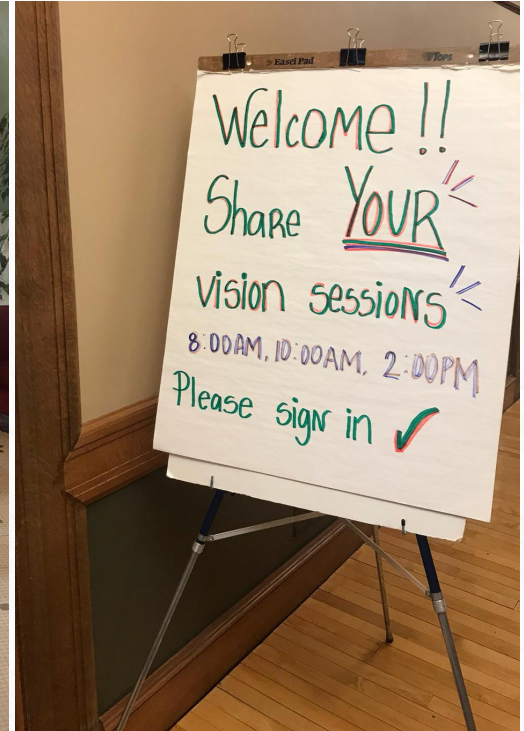 Easel Pad
TOPS
Welcome!!
Share YOUR
vision sessions
8:00AM, 10:00AM, 2:00PM
Please sign in ✓